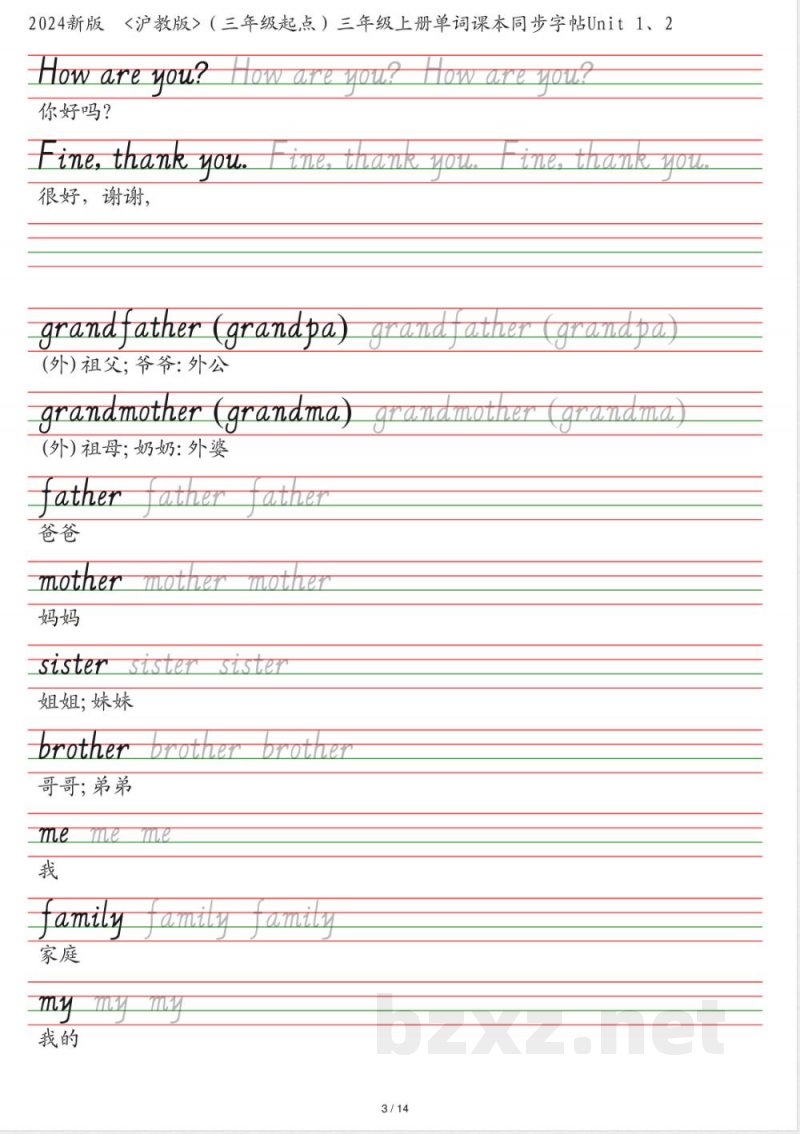 2024新版 <沪教版>(三年级起点)三年级上册单词课本同步字帖Unit 1、2
How are you? How are you? How are you?
你好吗?
Fine, thank you. Fine, thank you. Fine, thank you.
很好，谢谢,
grandfather (grandpa) grandfather (grandpa)
(外)祖父; 爷爷: 外公
grandmother (grandma) grandmother (grandma)
(外)祖母; 奶奶: 外婆
father father father
爸爸
mother mother mother
妈妈
sister sister sister
姐姐; 妹妹
brother brother brother
哥哥; 弟弟
me me me
我
family family family
家庭
my my my
我的
bzxz.net
3 / 14